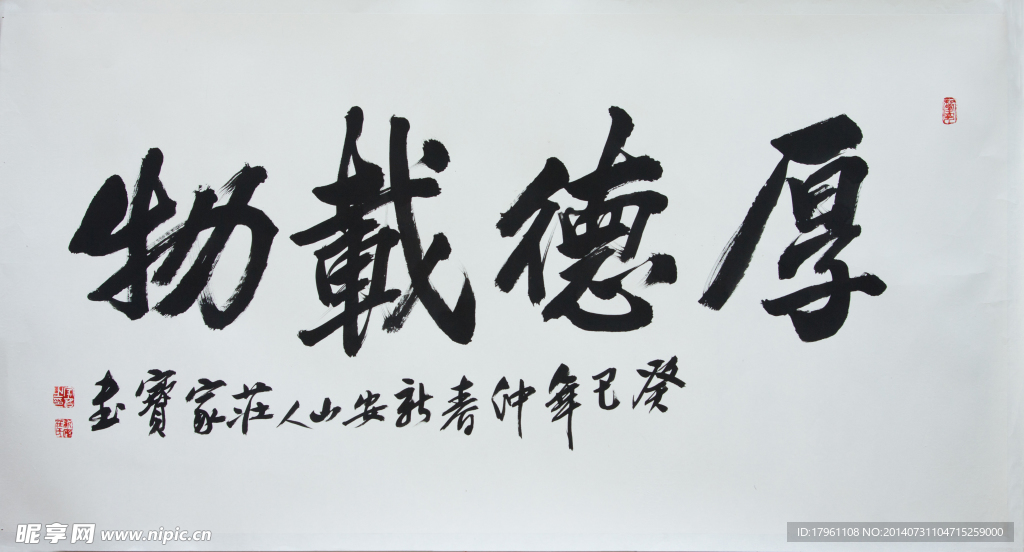 厚德載物
癸巳年仲春新安山人莊家寶書
昵享网 www.nipic.cn
ID:17961108 NO:20140731104715259000